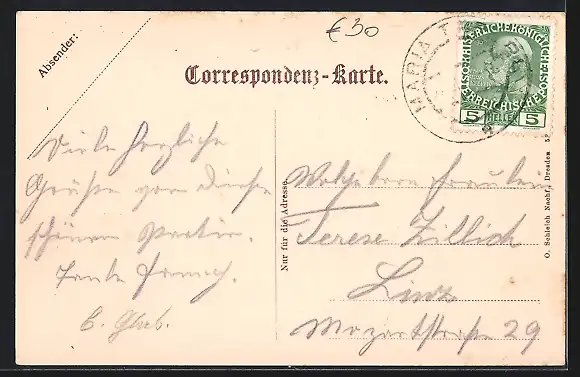 €30
Absender:
MARIA T
KAISERLICHE KÖNIGLICHE
ÖSTERREICHISCHE POST
5 HELLER 5
Correspondenz-Karte.
Viele herzliche
Grüße von dieser
schönen Partie.
Tante Fanny.
Wohlgeboren Fräulein
Terese Zillich
Linz
Mozartstraße 29
Nur für die Adresse.
O. Schleich Nachf., Dresden